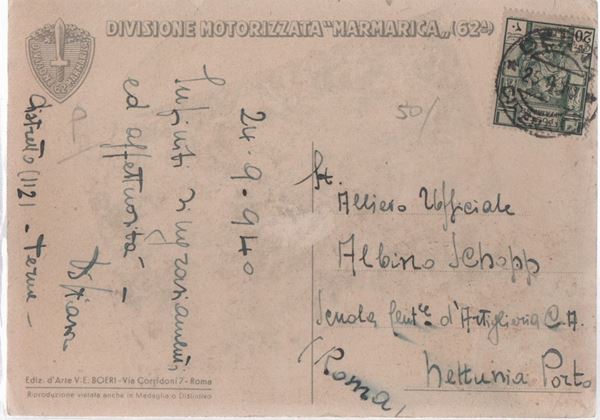 DIVISIONE MOTORIZZATA "MARMARICA" (62ª)
DIVISIONE 62ª MARMARICA
20
50/
24.9.940
Infiniti ringraziamenti
ed affettuosità -
Distretto (112) - Terme -
St.
Allievo Ufficiale
Albino Schopp
Scuola Cent.le d'Artiglieria C.A.
Nettunia Porto
(Roma)
Ediz. d'Arte V. E. BOERI - Via Corridoni 7 - Roma
Riproduzione vietata anche in Medaglia o Distintivo